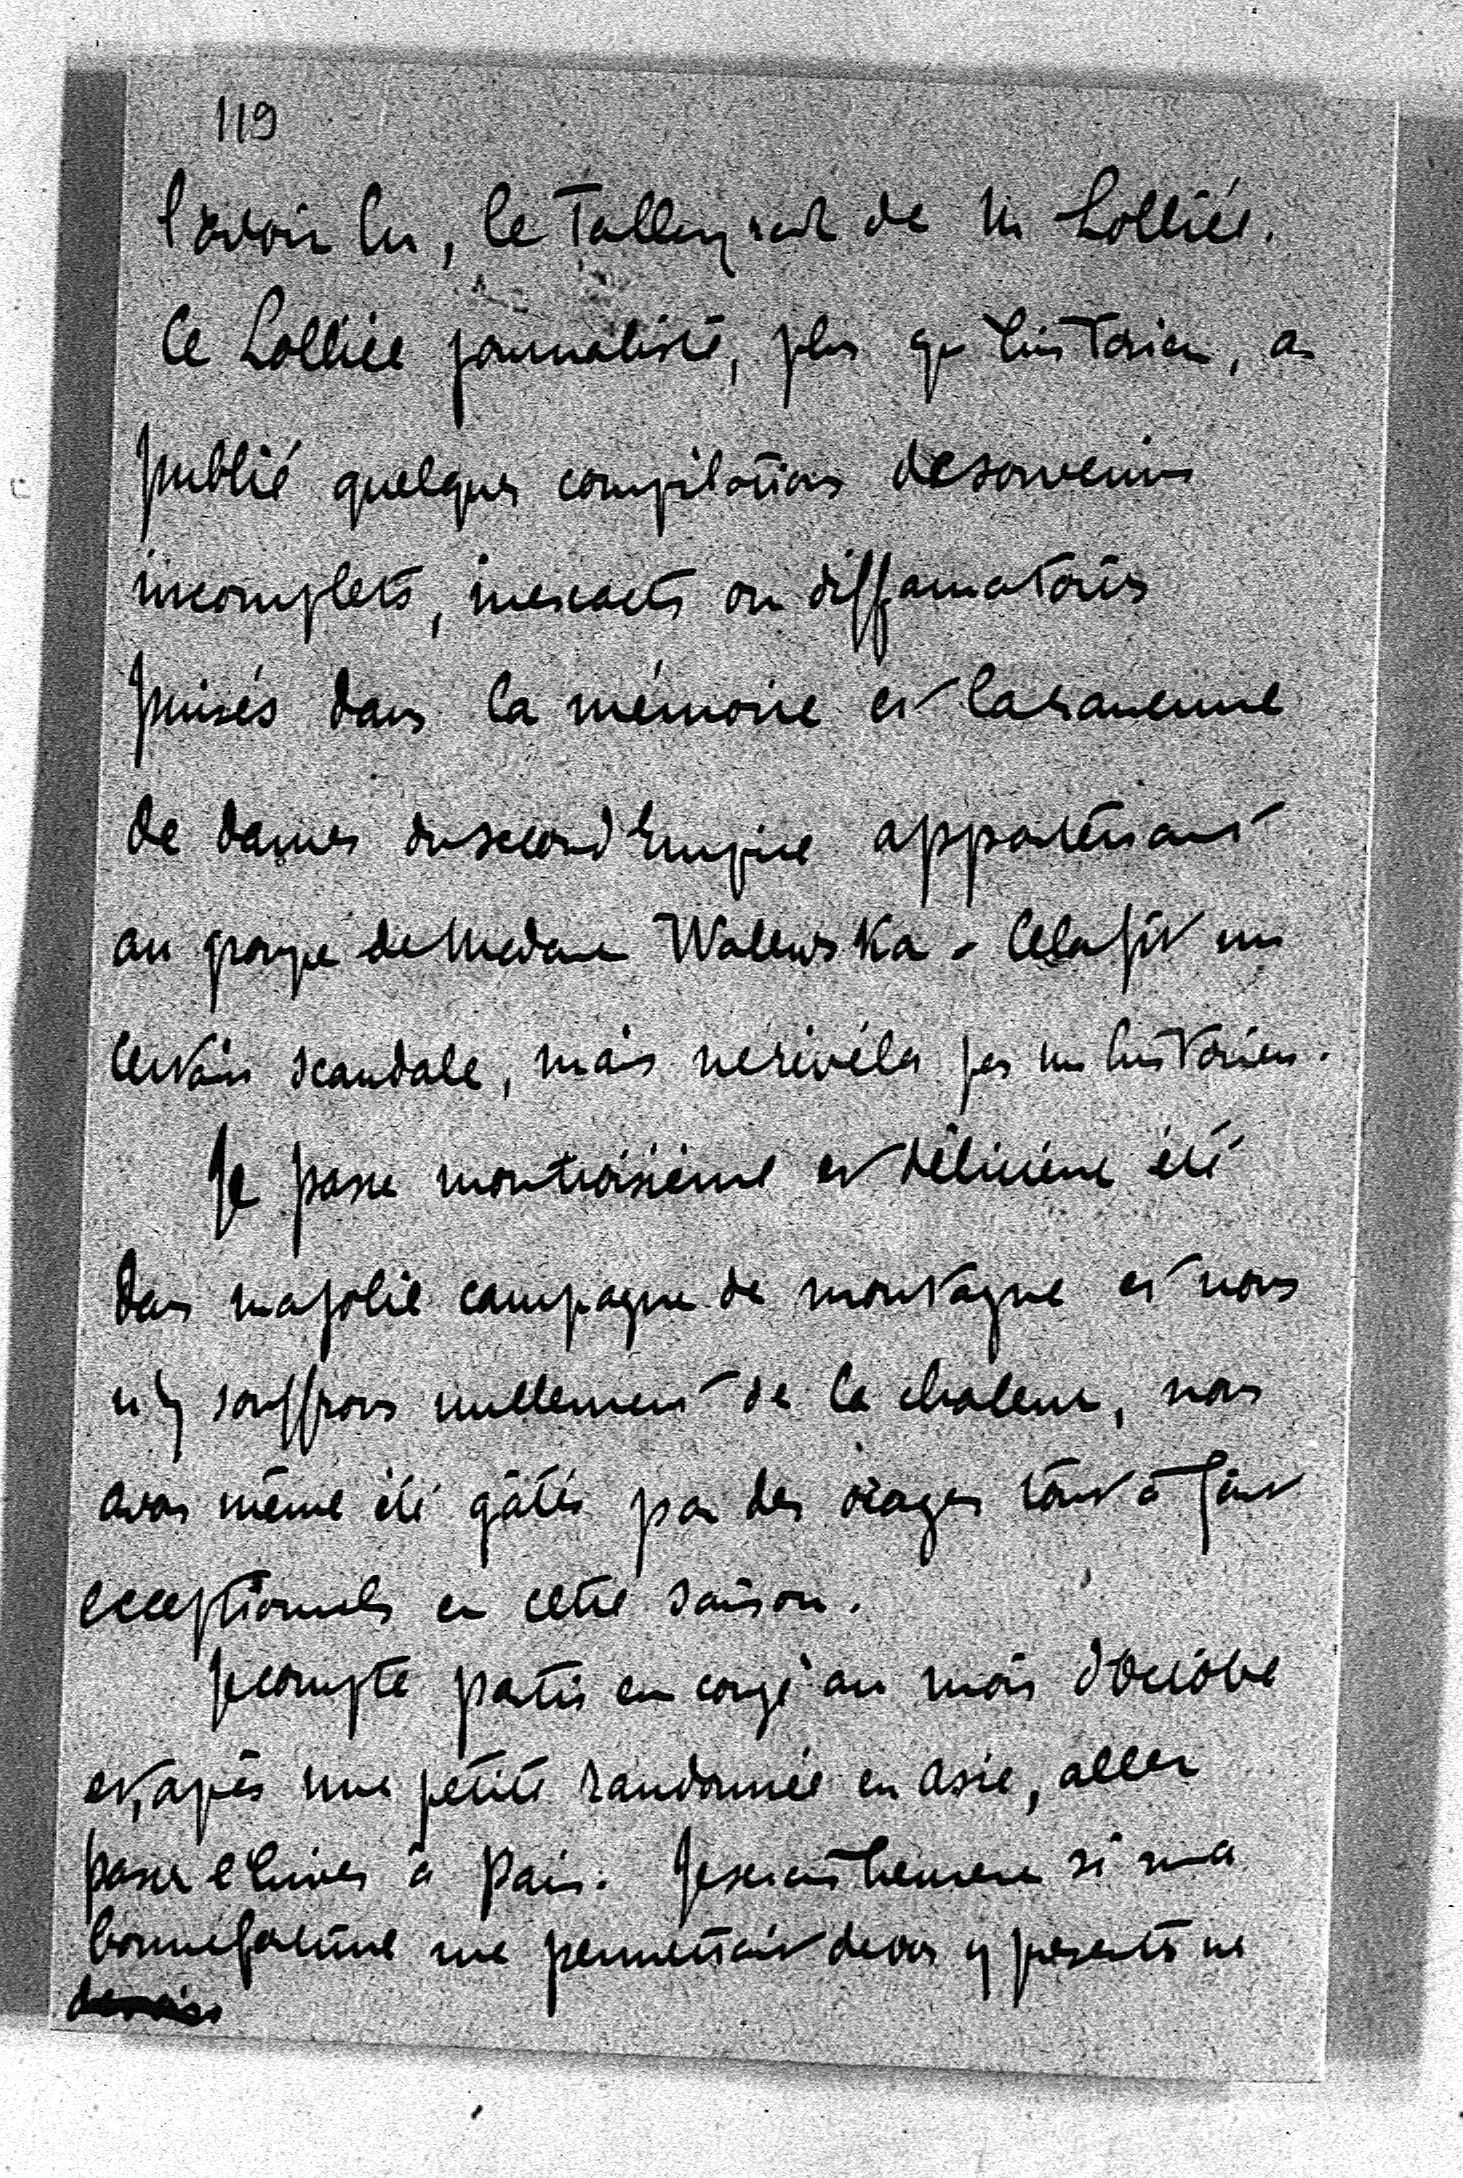 119
l'avoir lu, le Talleyrand de M Lolliée.
Ce Lolliée journaliste, plus qu'historien, a
publié quelques compilations de souvenirs
incomplets, inexacts ou diffamatoires
puisés dans la mémoire et la rancune
de dames du second Empire appartenant
au groupe de Madame Walewska. Cela fit un
certain scandale, mais ne révéla pas un historien.
Je passe mon troisième et délicieux été
dans ma jolie campagne de montagne et nous
n'y souffrons nullement de la chaleur, nous
avons même été gâtés par des orages tout à fait
exceptionnels en cette saison.
Je compte partir en congé au mois d'Octobre
et, après une petite randonnée en Asie, aller
passer l'hiver à Paris. Je serais heureux si ma
bonne fortune me permettait de vous y présenter